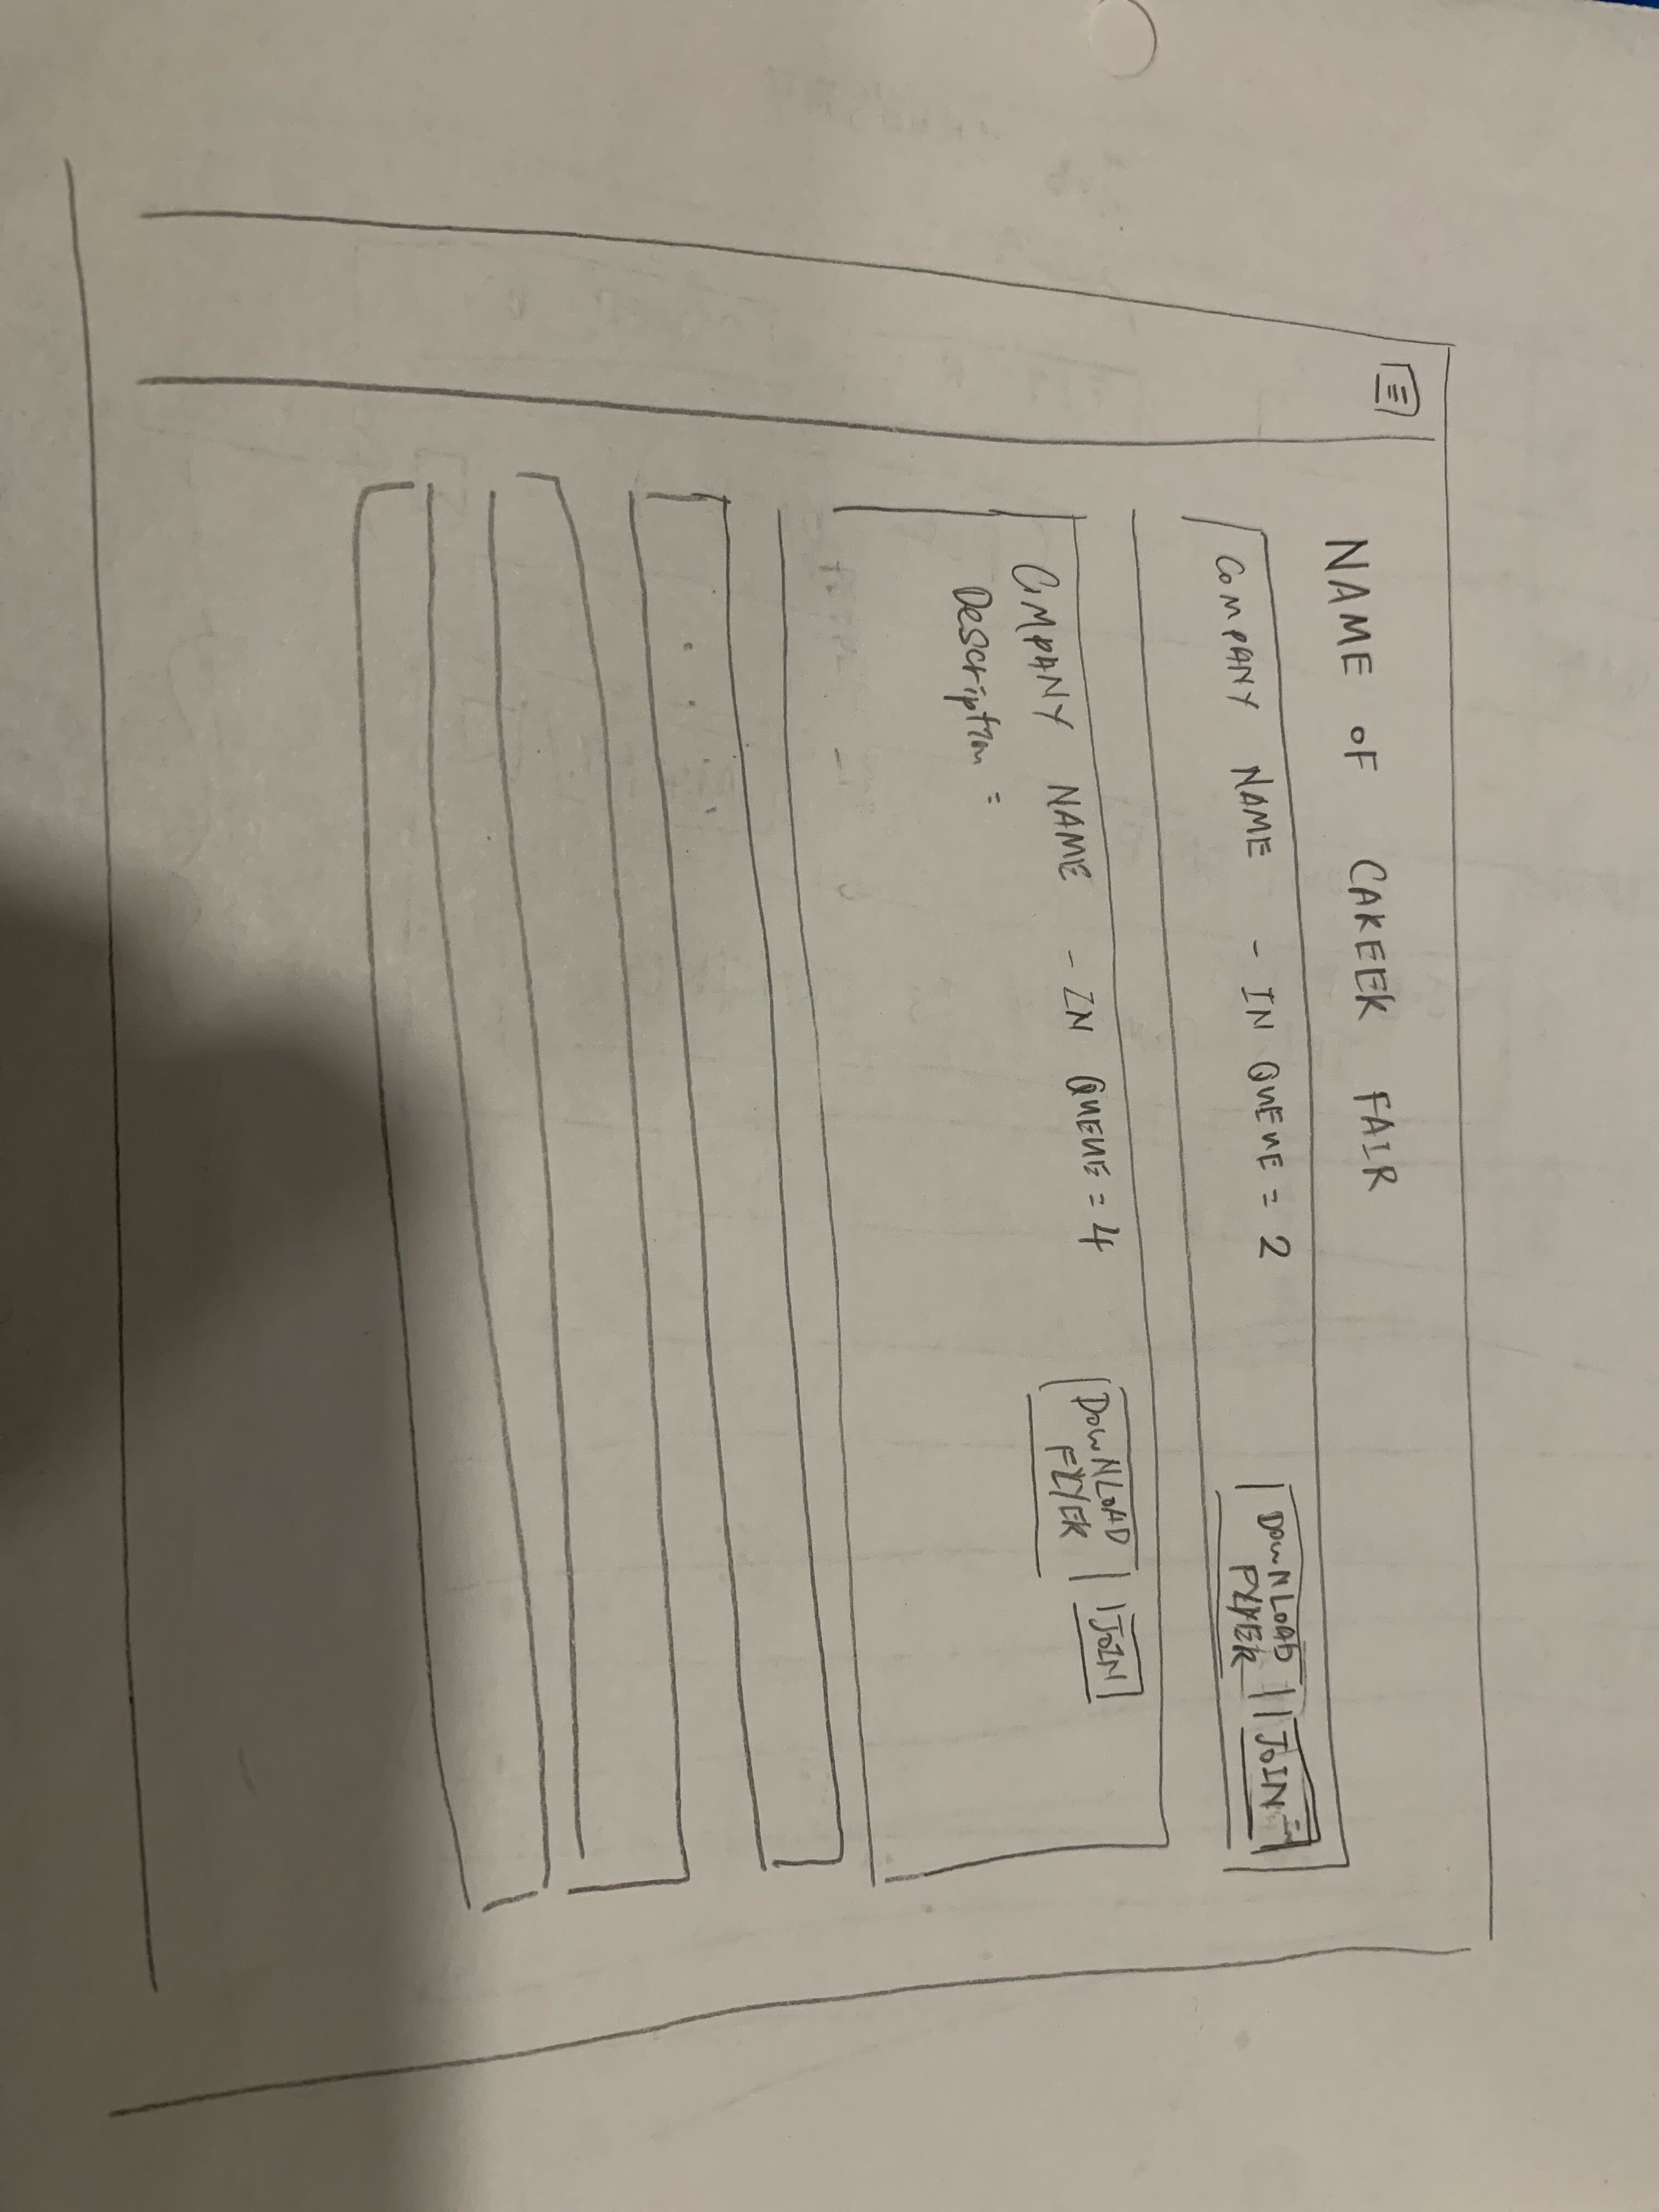 NAME OF CAREER FAIR
COMPANY NAME - IN QUEUE = 2
DOWNLOAD FLYER
JOIN
COMPANY NAME - IN QUEUE = 4
DOWNLOAD FLYER
JOIN
Description =